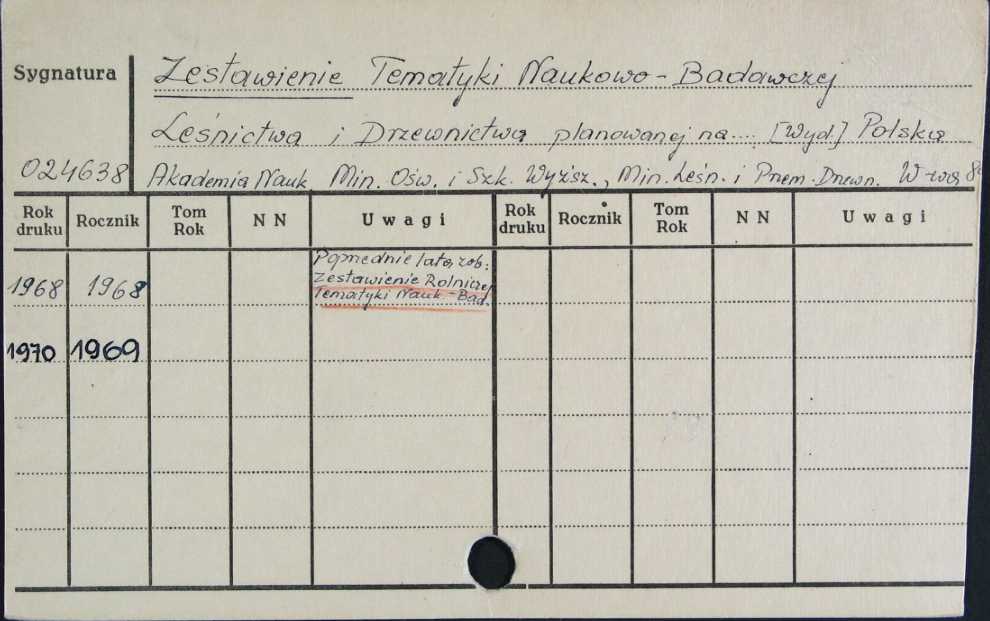 Sygnatura
Zestawienie Tematyki Naukowo-Badawczej
Leśnictwa i Drzewnictwa planowanej na.... [Wyd.] Polska
024638 Akademia Nauk, Min. Ośw. i Szk. Wyższ., Min. Leśn. i Przem. Drzewn. W-wa 8°
Rok druku Rocznik Tom Rok N N Uwagi Rok druku Rocznik Tom Rok N N Uwagi
Poprzednie lata, zob:
1968 1968 Zestawienie Rolniczej
Tematyki Nauk-Bad.
1970 1969